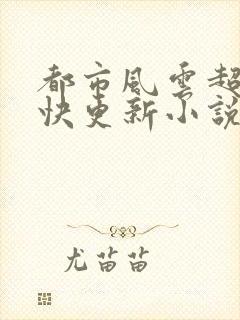 都市風雲超
快更新小說
尤苗苗